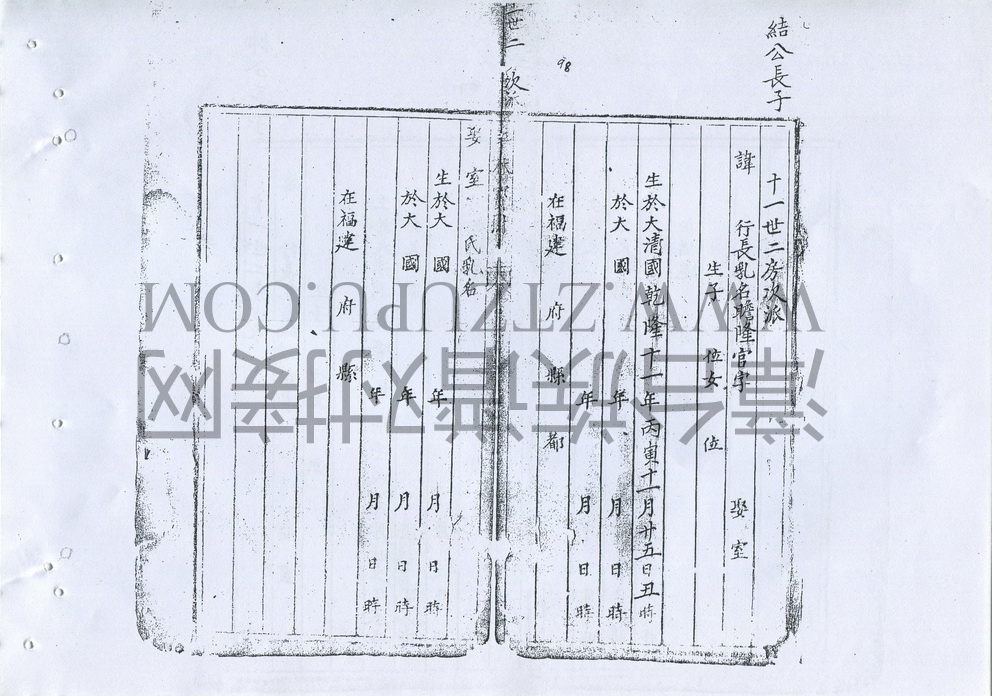 結公長子
98
十一世二房次派
諱 行長乳名瞻隆官字 娶室
生子 位女 位
生於大清國乾隆十一年丙寅十一月廿五日丑時
於大 國 年 月 日時
年 月 日時
在福建 府 縣 都
世二 次派
娶室 氏乳名
生於大 國 年 月 日時
於大 國 年 月 日時
年 月 日時
在福建 府 縣
WWW.ZTZUPU.COM
漳台族谱对接网